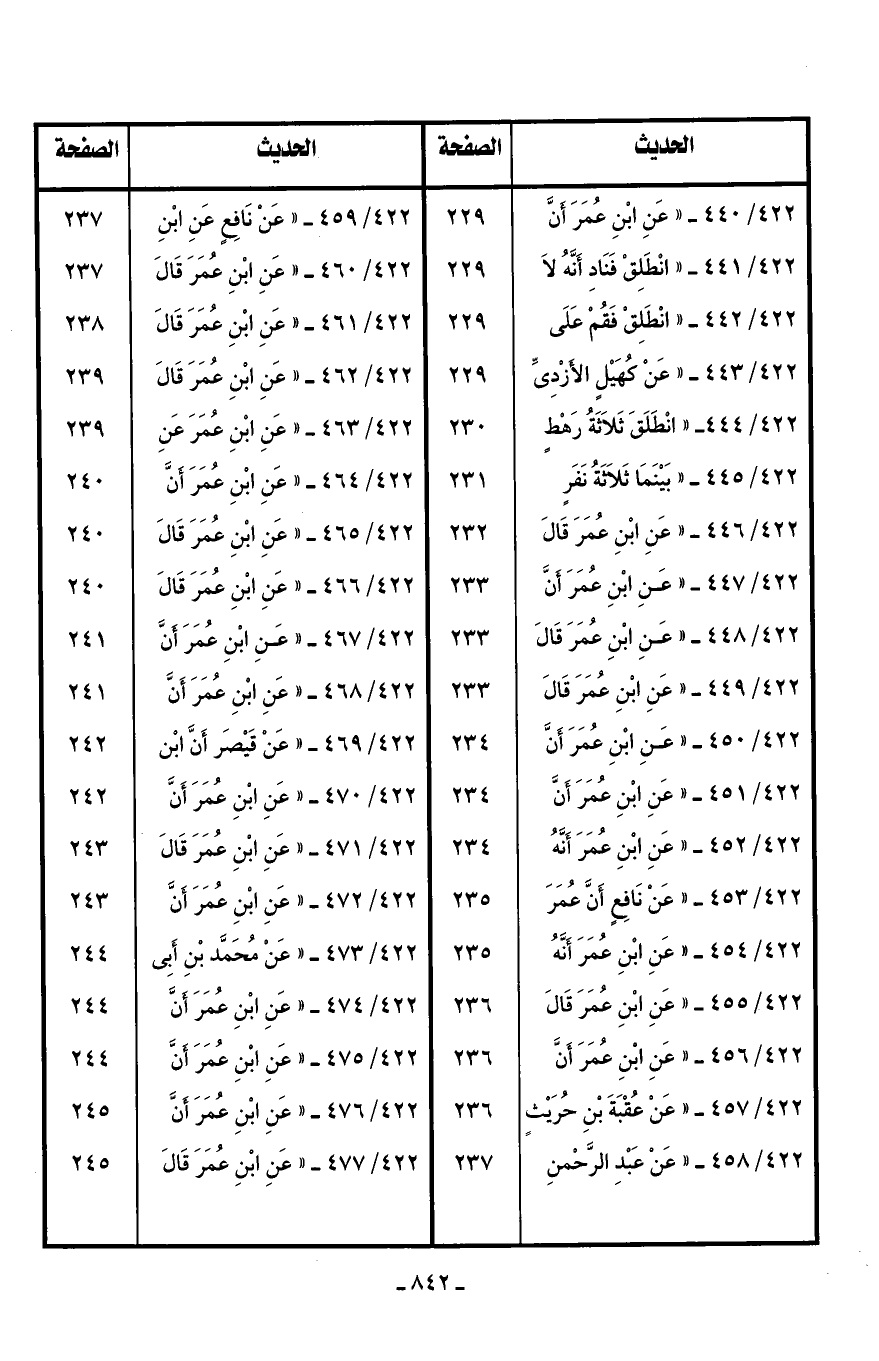 الحديث الصفحة الحديث الصفحة
٤٤٠/٤٢٢ ـ « عَنِ ابْنِ عُمَرَ أَنَّ ٢٢٩ ٤٥٩/٤٢٢ ـ « عَنْ نَافِعٍ عَنِ ابْنِ ٢٣٧
٤٤١/٤٢٢ ـ « انْطَلِقْ فَنَادِ أَنَّهُ لاَ ٢٢٩ ٤٦٠/٤٢٢ ـ « عَنِ ابْنِ عُمَرَ قَالَ ٢٣٧
٤٤٢/٤٢٢ ـ « انْطَلِقْ فَقُمْ عَلَى ٢٢٩ ٤٦١/٤٢٢ ـ « عَنِ ابْنِ عُمَرَ قَالَ ٢٣٨
٤٤٣/٤٢٢ ـ « عَنْ كُهَيْلٍ الأَزْدِىِّ ٢٢٩ ٤٦٢/٤٢٢ ـ « عَنِ ابْنِ عُمَرَ قَالَ ٢٣٩
٤٤٤/٤٢٢ـ « انْطَلَقَ ثَلاَثَةُ رَهْطٍ ٢٣٠ ٤٦٣/٤٢٢ ـ « عَنِ ابْنِ عُمَرَ عَنِ ٢٣٩
٤٤٥/٤٢٢ ـ « بَيْنَمَا ثَلاَثَةُ نَفَرٍ ٢٣١ ٤٦٤/٤٢٢ ـ « عَنِ ابْنِ عُمَرَ أَنَّ ٢٤٠
٤٤٦/٤٢٢ ـ « عَنِ ابْنِ عُمَرَ قَالَ ٢٣٢ ٤٦٥/٤٢٢ ـ « عَنِ ابْنِ عُمَرَ قَالَ ٢٤٠
٤٤٧/٤٢٢ ـ « عَـنِ ابْنِ عُمَرَ أَنَّ ٢٣٣ ٤٦٦/٤٢٢ ـ « عَنِ ابْنِ عُمَرَ قَالَ ٢٤٠
٤٤٨/٤٢٢ ـ « عَـنِ ابْنِ عُمَرَ قَالَ ٢٣٣ ٤٦٧/٤٢٢ ـ « عَـنِ ابْنِ عُمَرَ أَنَّ ٢٤١
٤٤٩/٤٢٢ ـ « عَنِ ابْنِ عُمَرَ قَالَ ٢٣٣ ٤٦٨/٤٢٢ ـ « عَنِ ابْنِ عُمَرَ أَنَّ ٢٤١
٤٥٠/٤٢٢ ـ « عَـنِ ابْنِ عُمَرَ أَنَّ ٢٣٤ ٤٦٩/٤٢٢ ـ « عَنْ قَيْصَر أَنَّ ابْن ٢٤٢
٤٥١/٤٢٢ ـ « عَنِ ابْنِ عُمَرَ أَنَّ ٢٣٤ ٤٧٠/٤٢٢ ـ « عَنِ ابْنِ عُمَرَ أَنَّ ٢٤٢
٤٥٢/٤٢٢ ـ « عَنِ ابْنِ عُمَرَ أَنَّهُ ٢٣٤ ٤٧١/٤٢٢ ـ « عَنِ ابْنِ عُمَرَ قَالَ ٢٤٣
٤٥٣/٤٢٢ ـ « عَنْ نَافِعٍ أَنَّ عُمَرَ ٢٣٥ ٤٧٢/٤٢٢ ـ « عَنِ ابْنِ عُمَرَ أَنَّ ٢٤٣
٤٥٤/٤٢٢ ـ « عَنِ ابْنِ عُمَرَ أَنَّهُ ٢٣٥ ٤٧٣/٤٢٢ ـ « عَنْ مُحَمَّد بْنِ أَبى ٢٤٤
٤٥٥/٤٢٢ ـ « عَنِ ابْنِ عُمَرَ قَالَ ٢٣٦ ٤٧٤/٤٢٢ ـ « عَنِ ابْنِ عُمَرَ أَنَّ ٢٤٤
٤٥٦/٤٢٢ ـ « عَنِ ابْنِ عُمَرَ أَنَّ ٢٣٦ ٤٧٥/٤٢٢ ـ « عَنِ ابْنِ عُمَرَ أَنَّ ٢٤٤
٤٥٧/٤٢٢ ـ « عَنْ عُقْبَةَ بْنِ حُرَيْثٍ ٢٣٦ ٤٧٦/٤٢٢ ـ « عَنِ ابْنِ عُمَرَ أَنَّ ٢٤٥
٤٥٨/٤٢٢ ـ « عَنْ عَبْدِ الرَّحْمنِ ٢٣٧ ٤٧٧/٤٢٢ ـ « عَنِ ابْنِ عُمَرَ قَالَ ٢٤٥
ـ ٨٤٢ ـ